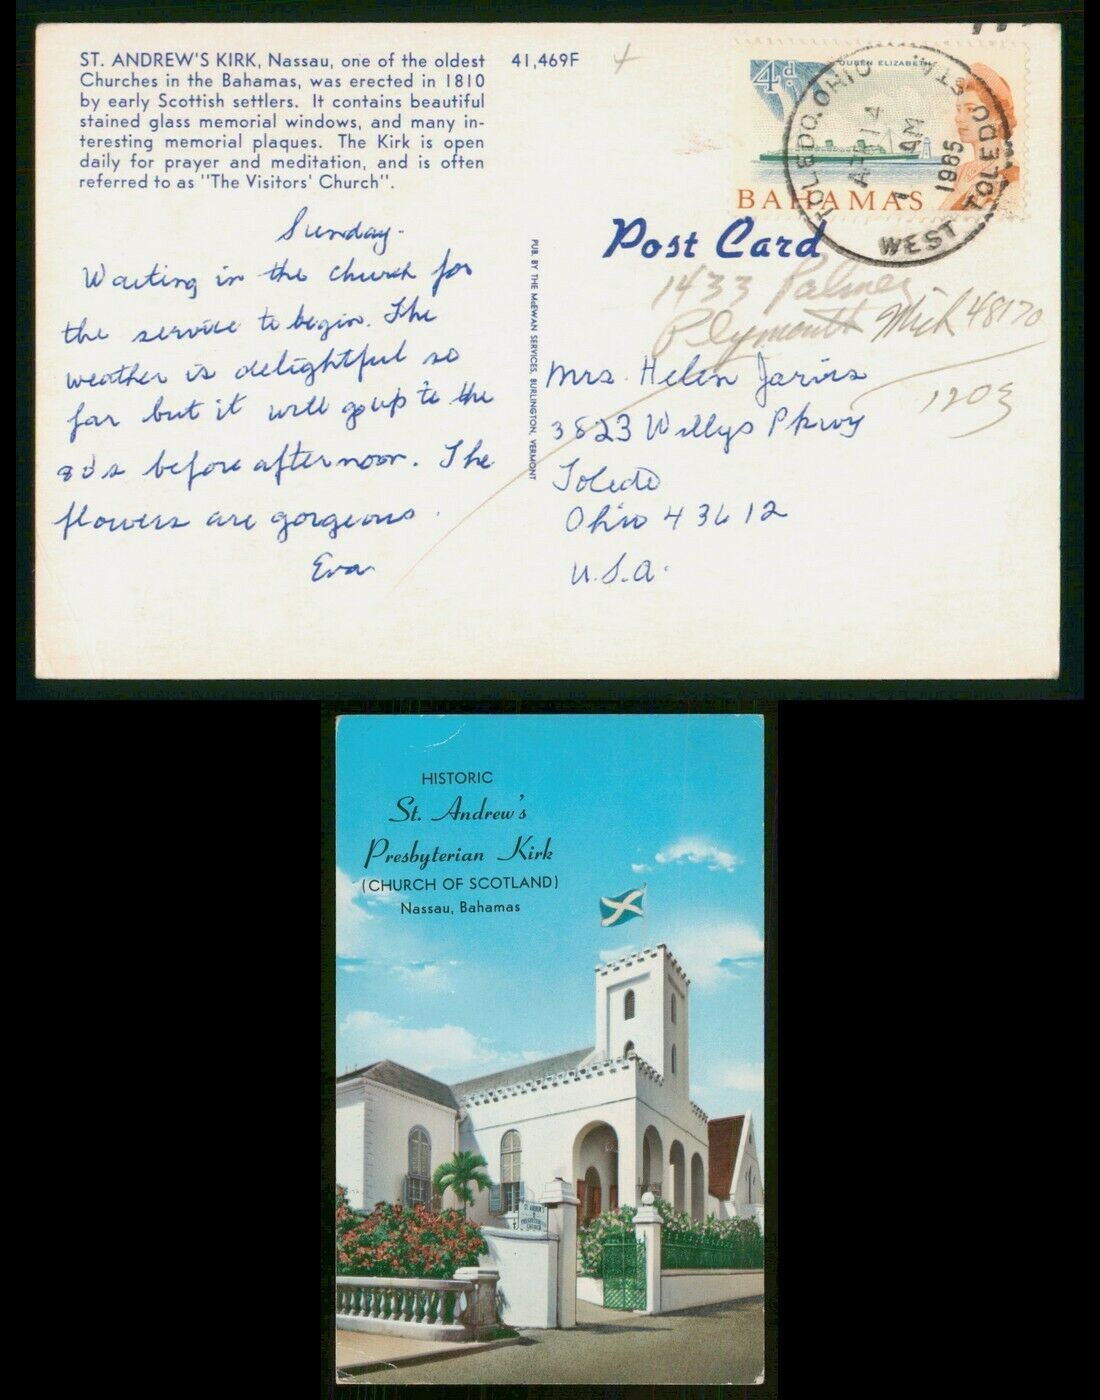 ST. ANDREW'S KIRK, Nassau, one of the oldest
Churches in the Bahamas, was erected in 1810
by early Scottish settlers. It contains beautiful
stained glass memorial windows, and many in-
teresting memorial plaques. The Kirk is open
daily for prayer and meditation, and is often
referred to as "The Visitors' Church".
41,469F
Sunday.
Waiting in the church for
the service to begin. The
weather is delightful so
far but it will go up to the
80's before afternoon. The
flowers are gorgeous.
Eva
PUB. BY THE McEWAN SERVICES, BURLINGTON, VERMONT
4d.
QUEEN ELIZABETH
BAHAMAS
TOLEDO, OHIO
STA.
14
1 AM
1965
WEST TOLEDO
Post Card
1433 Palmer
Plymouth Mich 48170
Mrs. Helen Jarvis
3823 Willys Pkwy
1203
Toledo
Ohio 43612
U.S.A.
HISTORIC
St. Andrew's
Presbyterian Kirk
(CHURCH OF SCOTLAND)
Nassau, Bahamas
ST. ANDREW'S
PRESBYTERIAN
CHURCH